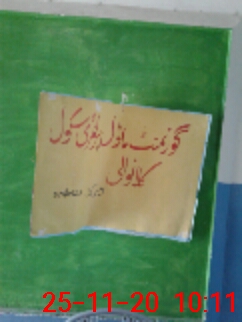 گورنمنٹ ماڈل پرائمری سکول
کمانوالی
25-11-20 10:11